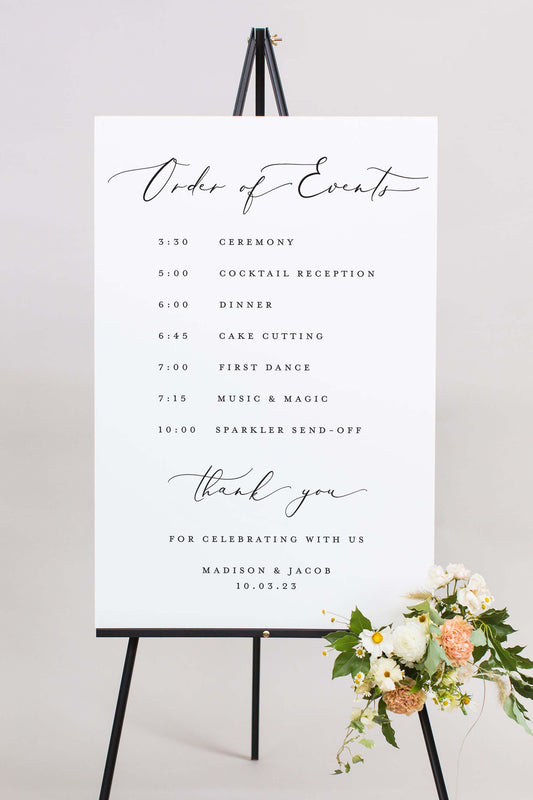 Order of Events
3:30 CEREMONY
5:00 COCKTAIL RECEPTION
6:00 DINNER
6:45 CAKE CUTTING
7:00 FIRST DANCE
7:15 MUSIC & MAGIC
10:00 SPARKLER SEND-OFF
thank you
FOR CELEBRATING WITH US
MADISON & JACOB
10.03.23